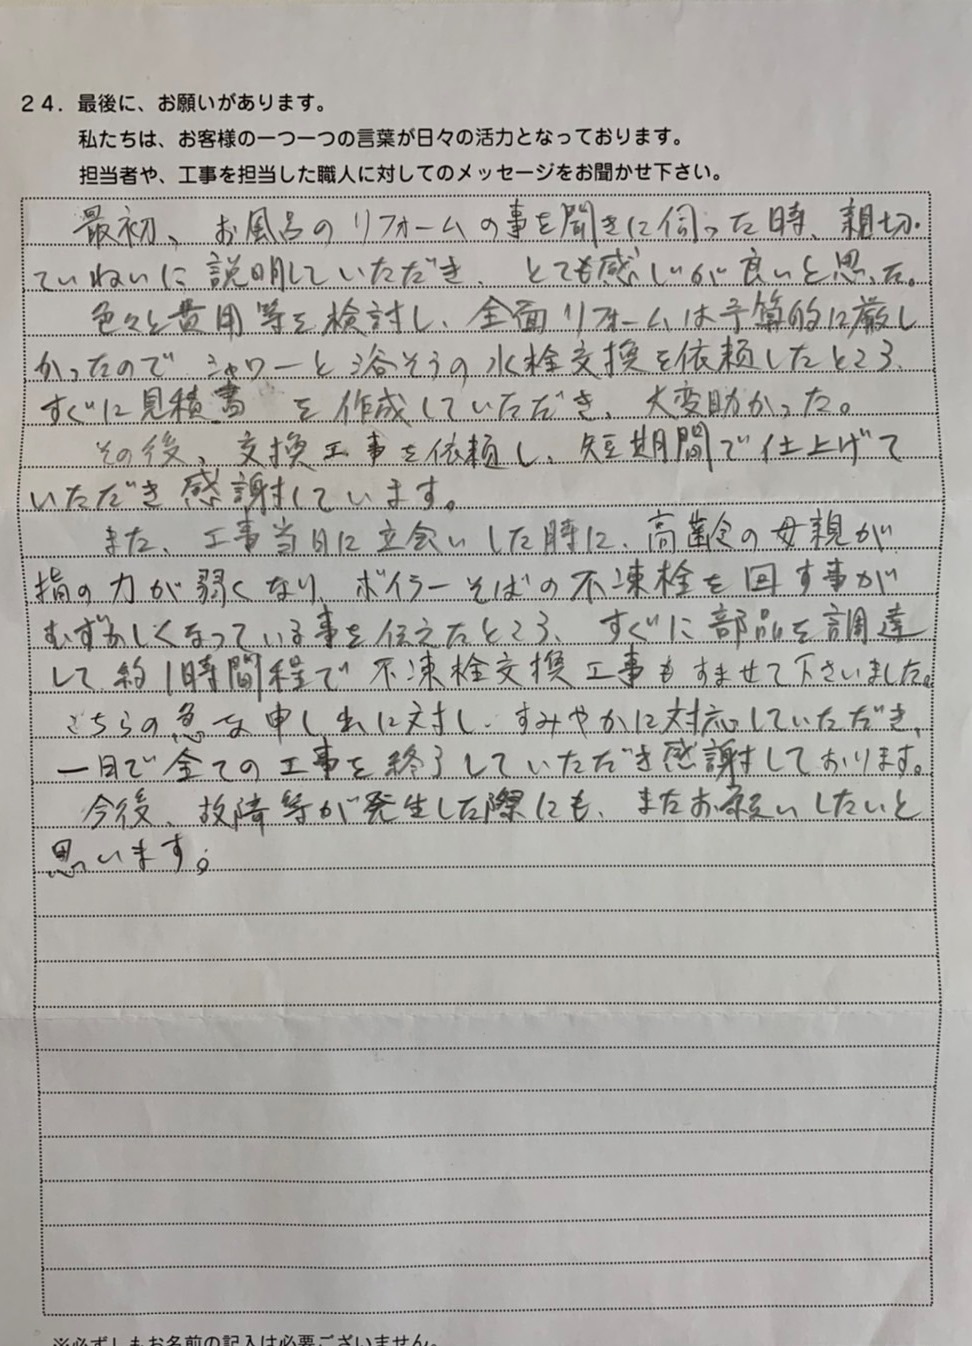 24．最後に、お願いがあります。
私たちは、お客様の一つ一つの言葉が日々の活力となっております。
担当者や、工事を担当した職人に対してのメッセージをお聞かせ下さい。
最初、お風呂のリフォームの事を聞きに伺った時、親切.
ていねいに説明していただき、とても感じが良いと思った。
色々と費用等を検討し、全面リフォームは予算的に厳し
かったので シャワーと浴そうの水栓交換を依頼したところ、
すぐに見積書を作成していただき、大変助かった。
その後、交換工事を依頼し、短期間で仕上げて
いただき感謝しています。
また、工事当日に立会いした時に、高齢の母親が
指の力が弱くなり、ボイラーそばの不凍栓を回す事が
むずかしくなっている事を伝えたところ、すぐに部品を調達
して約1時間程で不凍栓交換工事もすませて下さいました。
こちらの急な申し出に対し、すみやかに対応していただき、
一日で全ての工事を終了していただき感謝しております。
今後、故障等が発生した際にも、またお願いしたいと
思います。
※必ずしもお名前の記入は必要ございません。